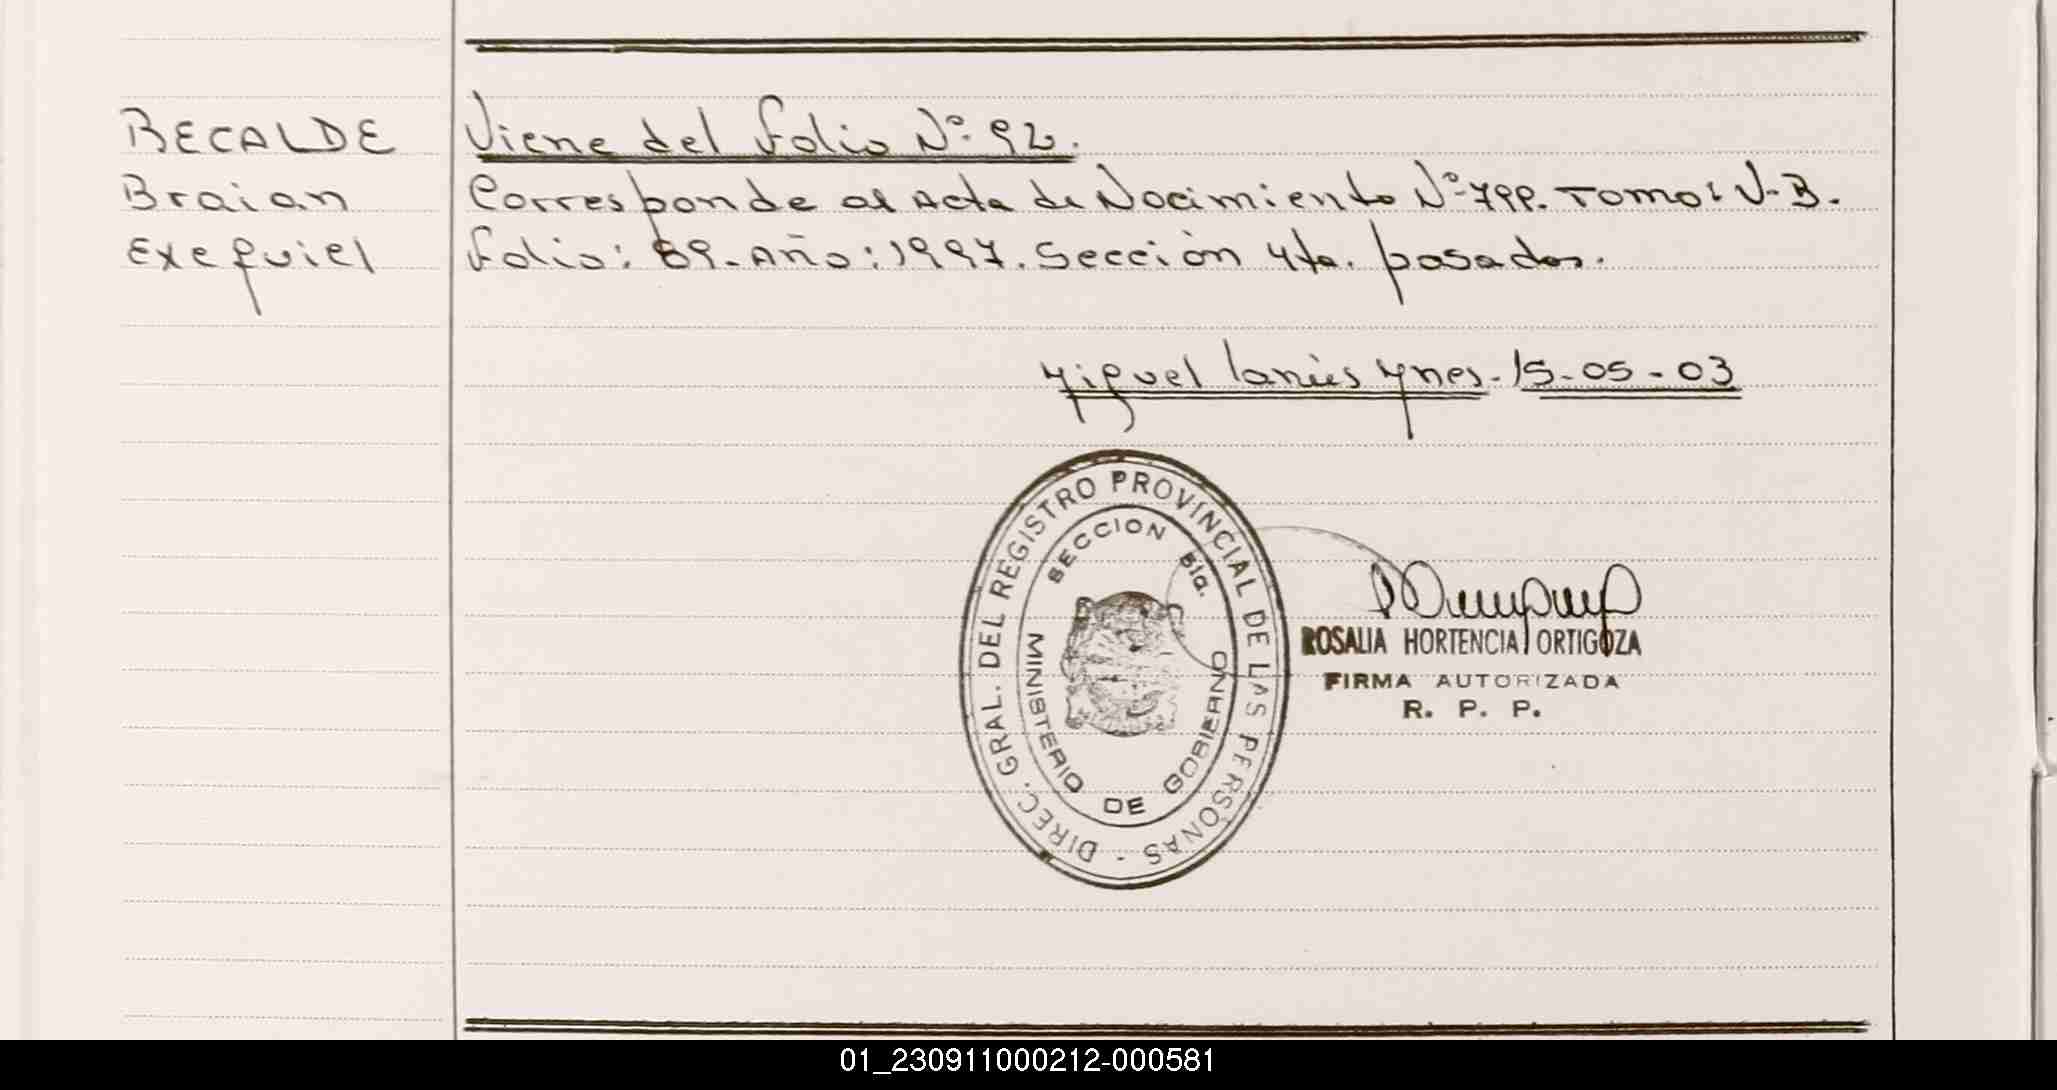 BECALDE
Braian
Exequiel
Viene del folio Nº 92.
Corresponde al Acta de Nacimiento Nº 799. Tomo: V-B.
folio: 89. Año: 1997. Sección 4ta. posadas.
Miguel Lanús Ynes. 15-05-03
DIREC. GRAL. DEL REGISTRO PROVINCIAL DE LAS PERSONAS -
SECCION 5ta.
MINISTERIO DE GOBIERNO
ROSALIA HORTENCIA ORTIGOZA
FIRMA AUTORIZADA
R. P. P.
01_230911000212-000581